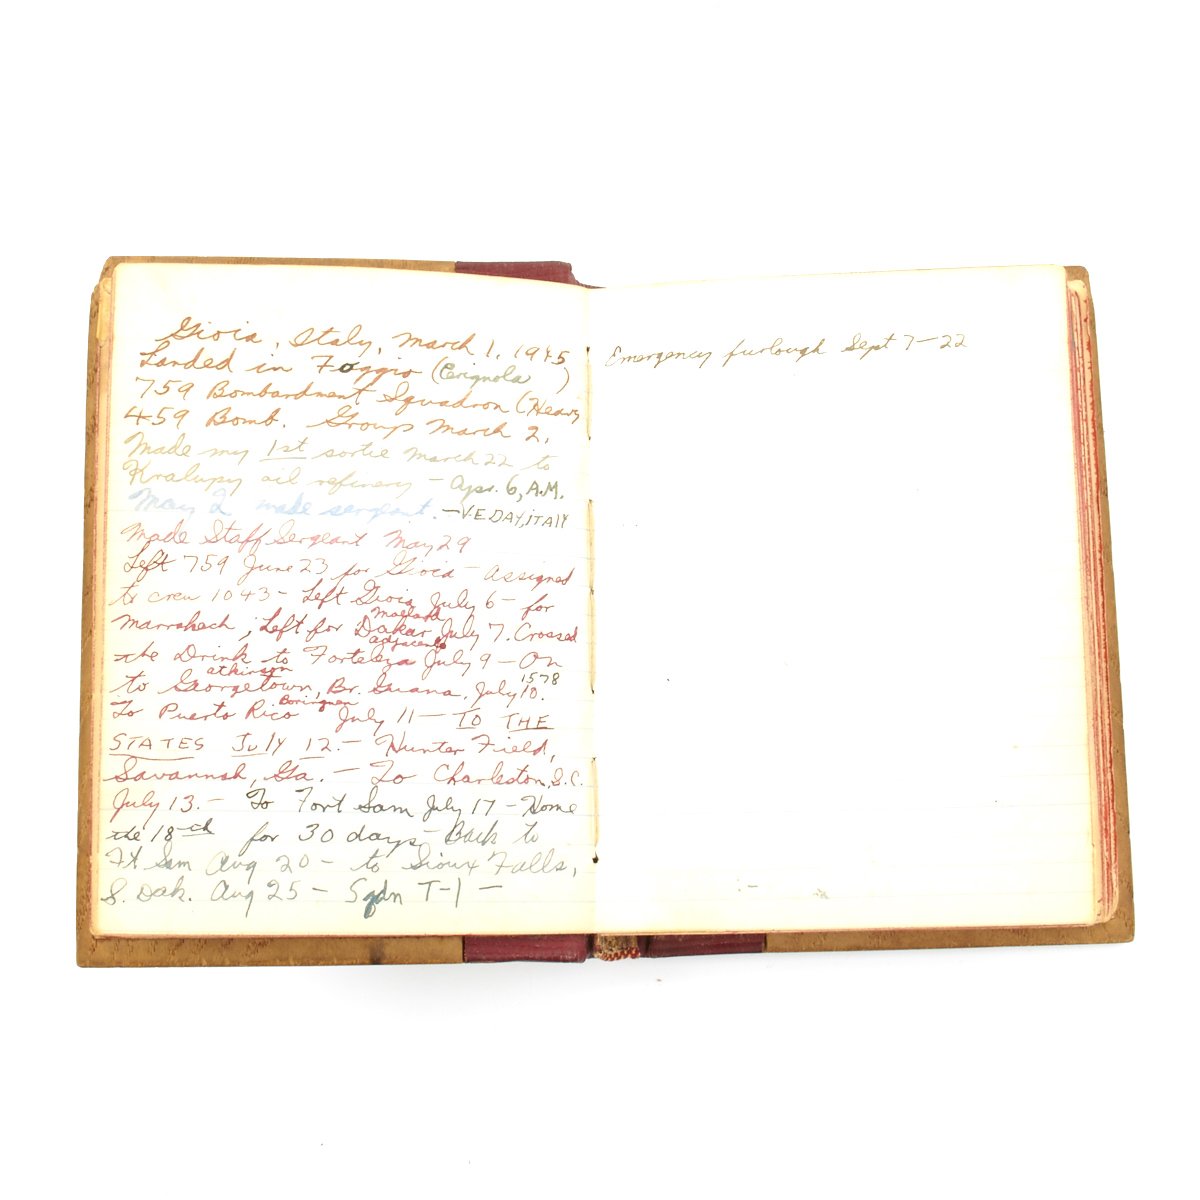 Gioia, Italy, March 1, 1945
Landed in Foggio (Cerignola )
759 Bombardment Squadron (Heavy
459 Bomb. Group March 2,
Made my 1st sortie March 22 to
Kralupy oil refinery - Apr. 6, A.M.
May 2 made sergeant. - V.E DAY, iTAlY
Made Staff Sergeant May 29
Left 759 June 23 for Gioia - assigned
to crew 1043 - Left Gioia July 6 - for
Mallard
Marrakech, Left for Dakar July 7. Crossed
adjacento
the Drink to Forteleza July 9 - On
atkinson 1578
to Georgetown, Br. Guiana, July 10.
Borinquen
To Puerto Rico July 11 - TO THE
STATES JulY 12. - Hunter Field,
Savannah, Ga. - To Charleston, S.C.
July 13. - To Fort Sam July 17 - Home
the 18 for 30 days - Back to
Ft Sam Aug 20 - to Sioux Falls,
S. Dak. Aug 25 - Sqdn T-1 -
Emergency furlough Sept 7-22